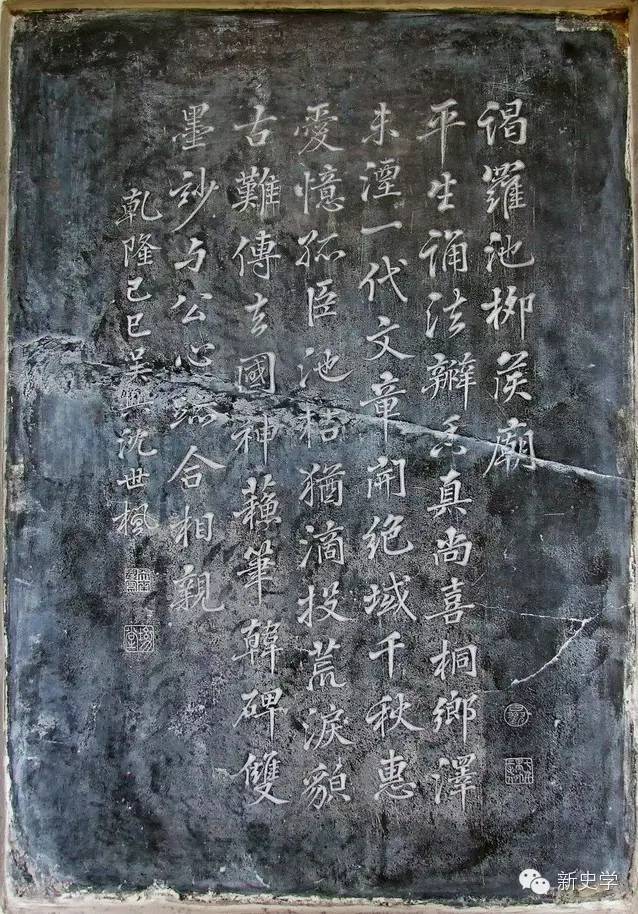 谒羅池柳侯廟
平生诵法瓣香真尚喜桐鄉澤
未湮一代文章開绝域千秋惠
愛憶孤臣池枯猶滴投荒淚貌
古難傳去國神蘓筆韓碑雙
墨妙与公心迹合相親
乾隆己巳吴興沈世楓
新史学